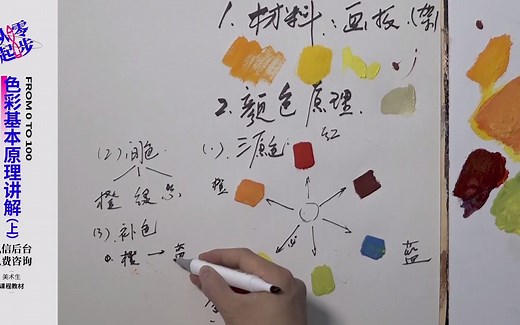 从零
起步
FROM 0 TO 100
色彩基本原理讲解(上)
美术生
课程教材
1.材料:画板.
2.颜色原理.
(1).三原色
红
橙
蓝
(2)间色
橙 绿
(3)补色
①.橙→蓝